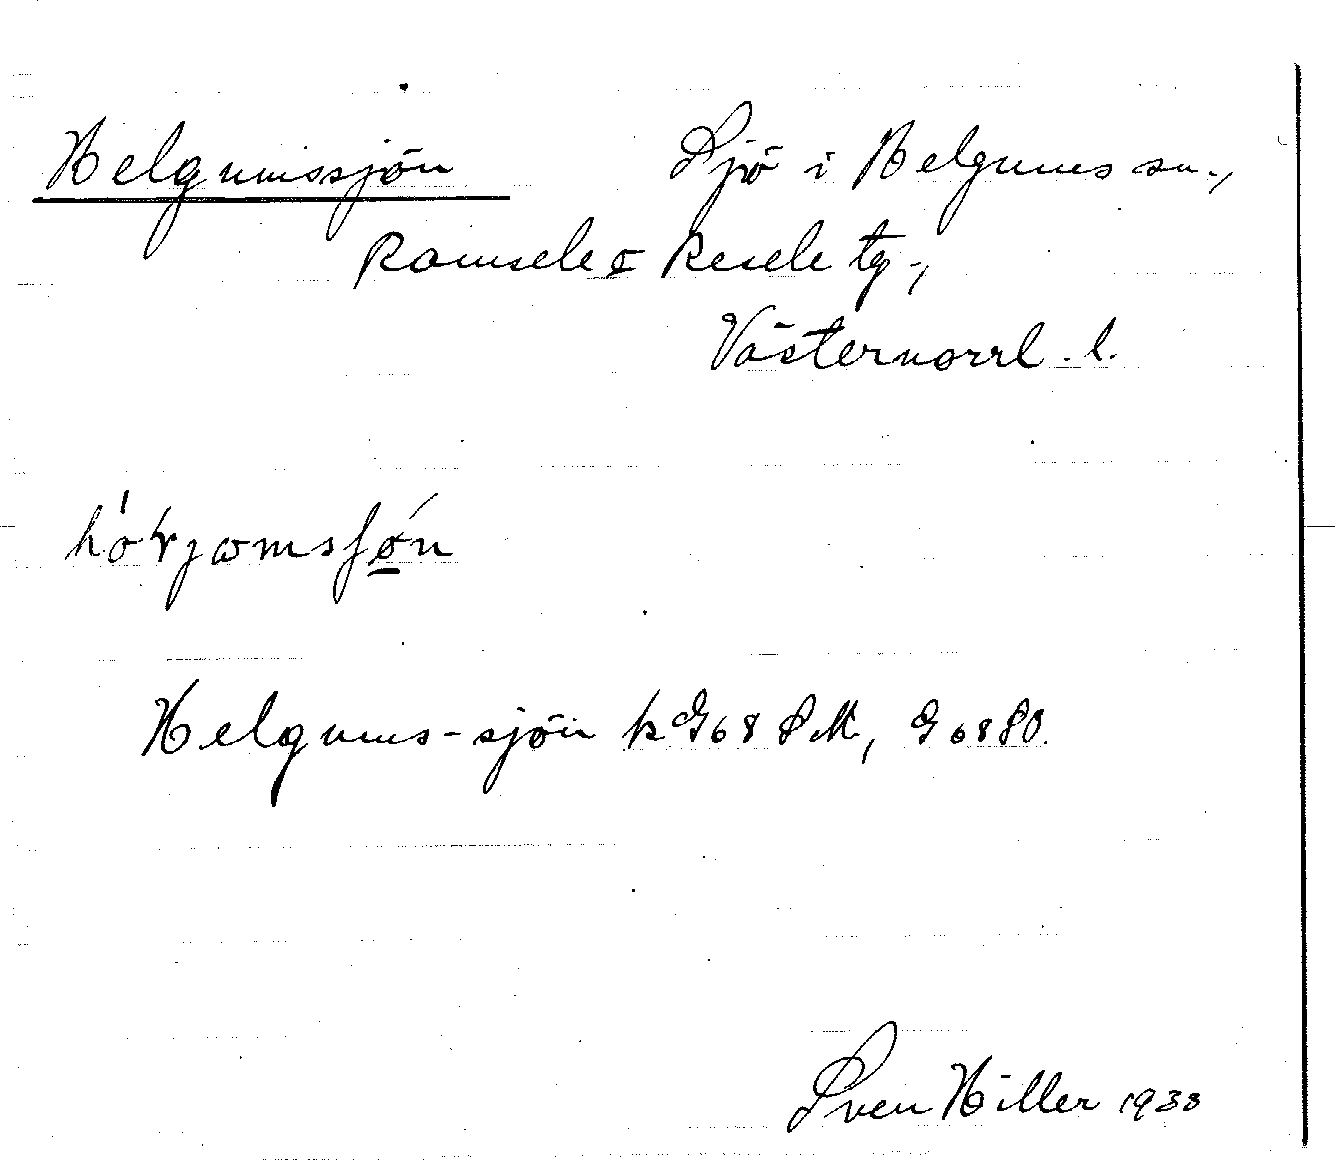 Helgumssjön Sjö i Helgums sn.,
Ramsele & Resele tg.,
Västernorrl. l.
Helgums-sjön k G68 SM, G68 SO.
Sven Hiller 1933